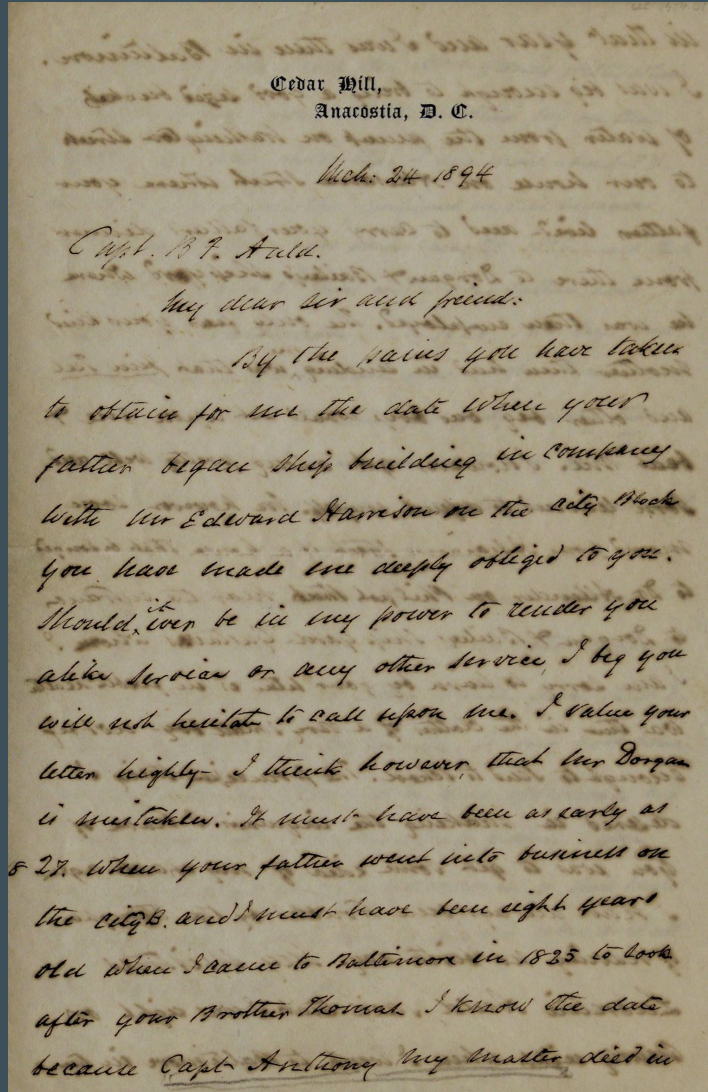 Cedar Hill,
Anacostia, D. C.
Mch: 24 1894
Capt. B F. Auld.
My dear Sir and friend:
By the pains you have taken
to obtain for me the date when your
father began ship building in company
with Mr Edward Harrison on the City Block
you have made me deeply obliged to you.
Should it ever be in my power to render you
alike service or any other service, I beg you
will not hesitate to call upon me. I value your
letter highly- I think however, that Mr Dorgan
is mistaken. It must have been as early as
27. when your father went into business on
the city B. and I must have been eight years
old when I came to Baltimore in 1825 to look
after your Brother Thomas. I know the date
because Capt Anthony my master, died in